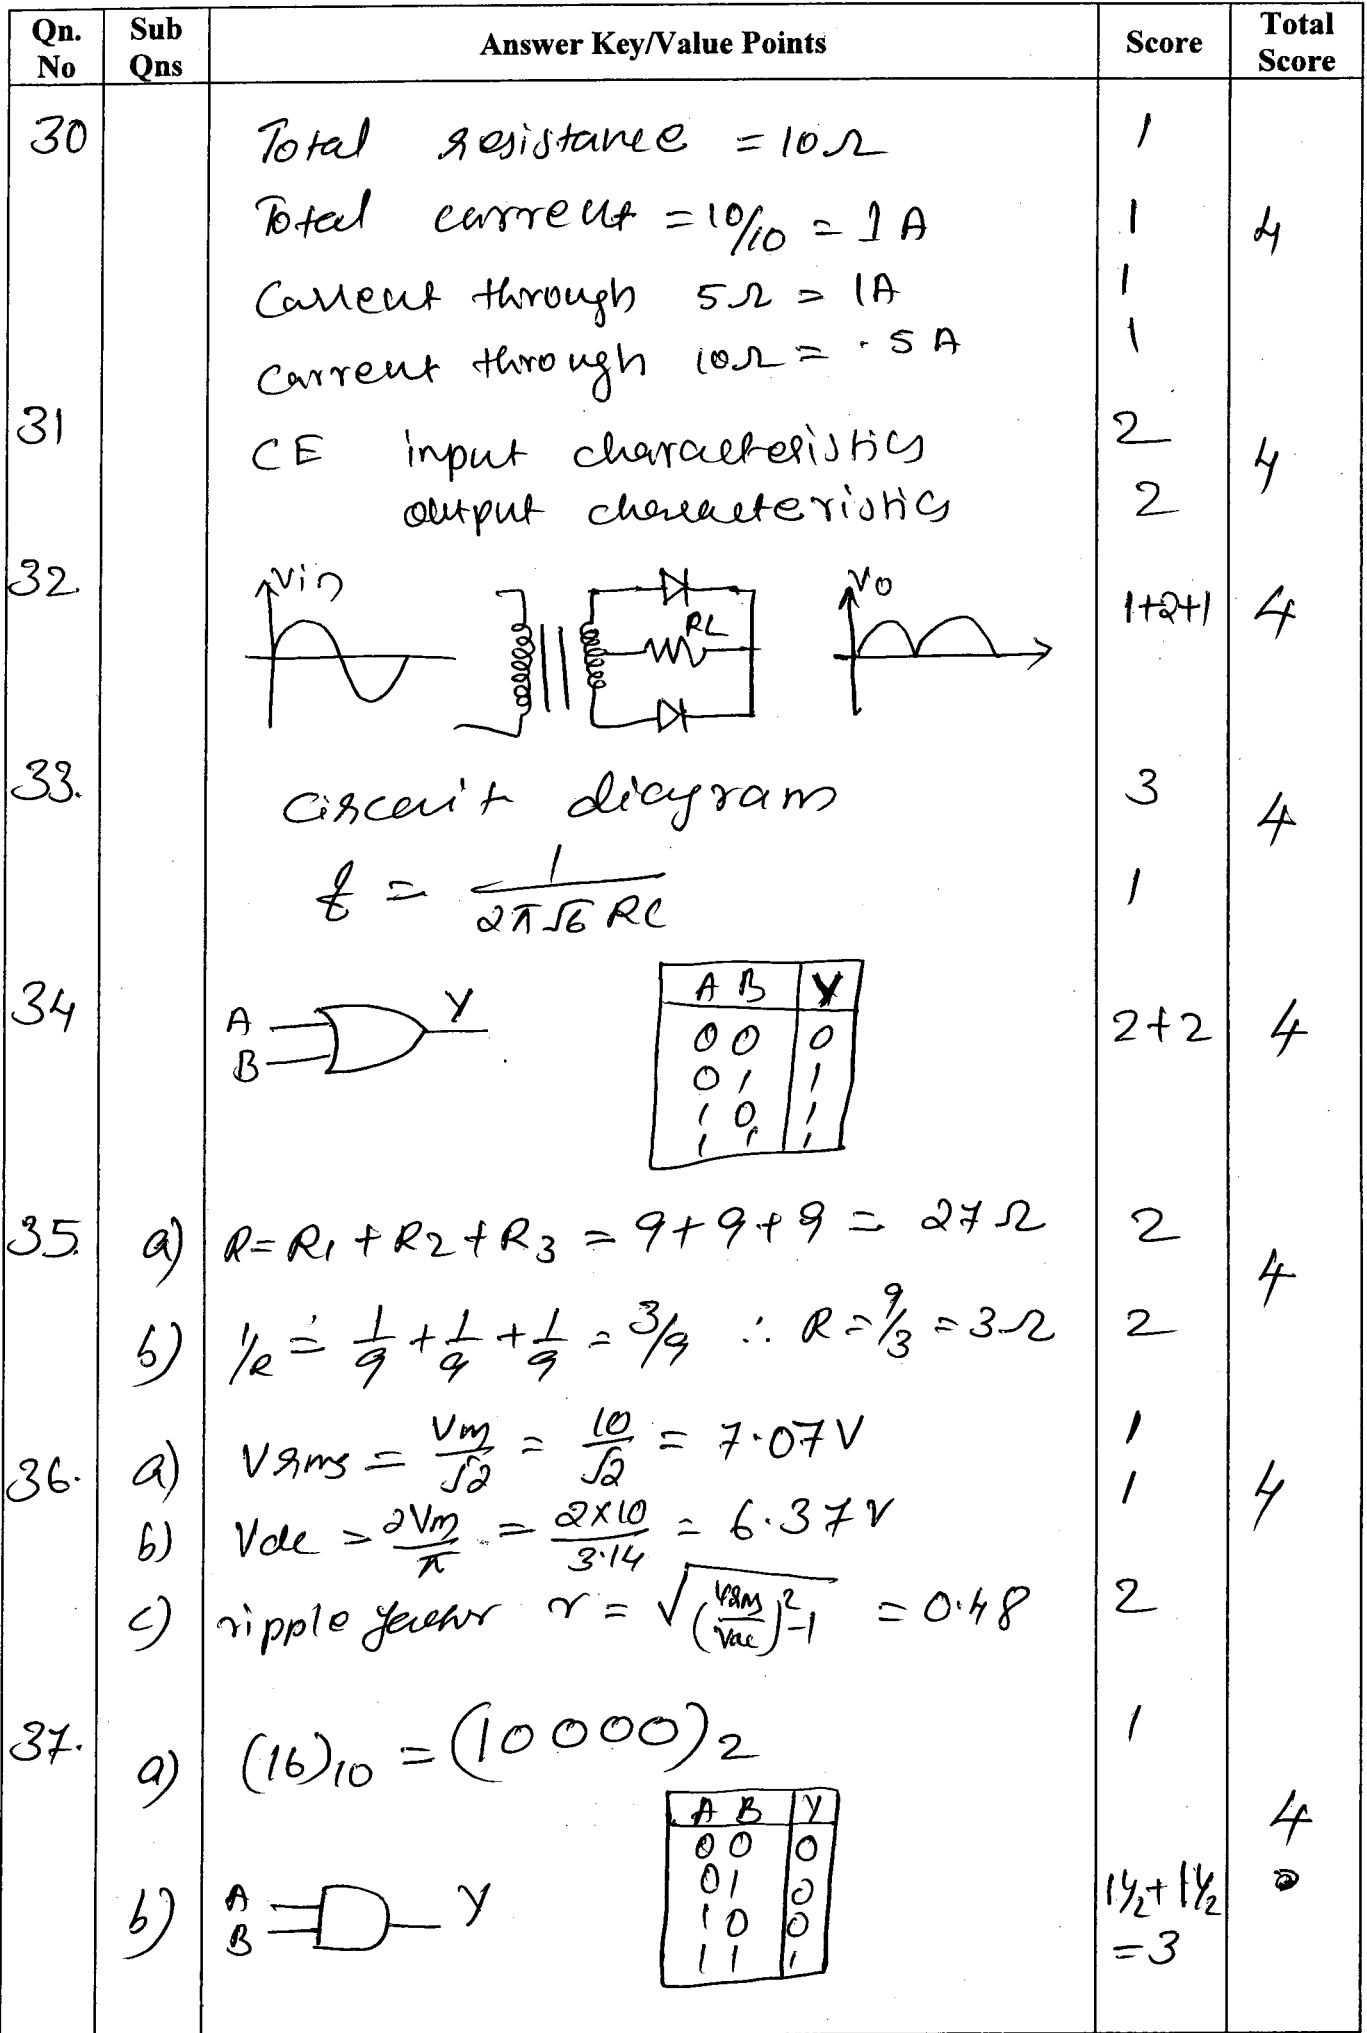 Qn. No | Sub Qns | Answer Key/Value Points | Score | Total Score
30 | Total resistance = 10Ω | 1
Total current = 10/10 = 1 A | 1 | 4
Current through 5Ω = 1A | 1
Current through 10Ω = .5 A | 1
31 | CE input characteristics | 2 | 4
output characteristics | 2
32. | Vin | RL | Vo | 1+2+1 | 4
33. | Circuit diagram | 3 | 4
f = 1/(2π√6 RC) | 1
34 | A B Y | 2+2 | 4
A B | Y
0 0 | 0
0 1 | 1
1 0 | 1
1 1 | 1
35. | a) | R = R1 + R2 + R3 = 9+9+9 = 27Ω | 2 | 4
b) | 1/R = 1/9 + 1/9 + 1/9 = 3/9 ∴ R = 9/3 = 3Ω | 2
36. | a) | Vrms = Vm/√2 = 10/√2 = 7.07V | 1 | 4
b) | Vdc = 2Vm/π = 2×10/3.14 = 6.37V | 1
c) | ripple factor r = √((Vrms/Vdc)²-1) = 0.48 | 2
37. | a) | (16)10 = (10000)2 | 1 | 4
b) | A B Y | 1½ + 1½ = 3
A B | Y
0 0 | 0
0 1 | 0
1 0 | 0
1 1 | 1